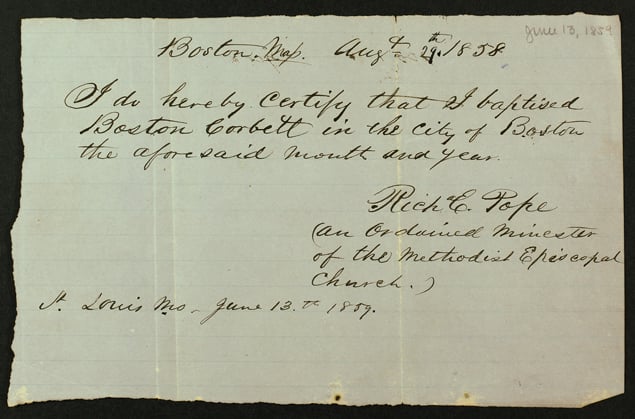 June 13, 1859
Boston, Mass. Augt 29th, 1858
I do hereby certify that I baptised
Boston Corbett in the city of Boston
the aforesaid month and year.
Richd E. Pope
(an Ordained Minester
of the Methodist Episcopal
Church.)
St. Louis Mo. June 13.th 1859.